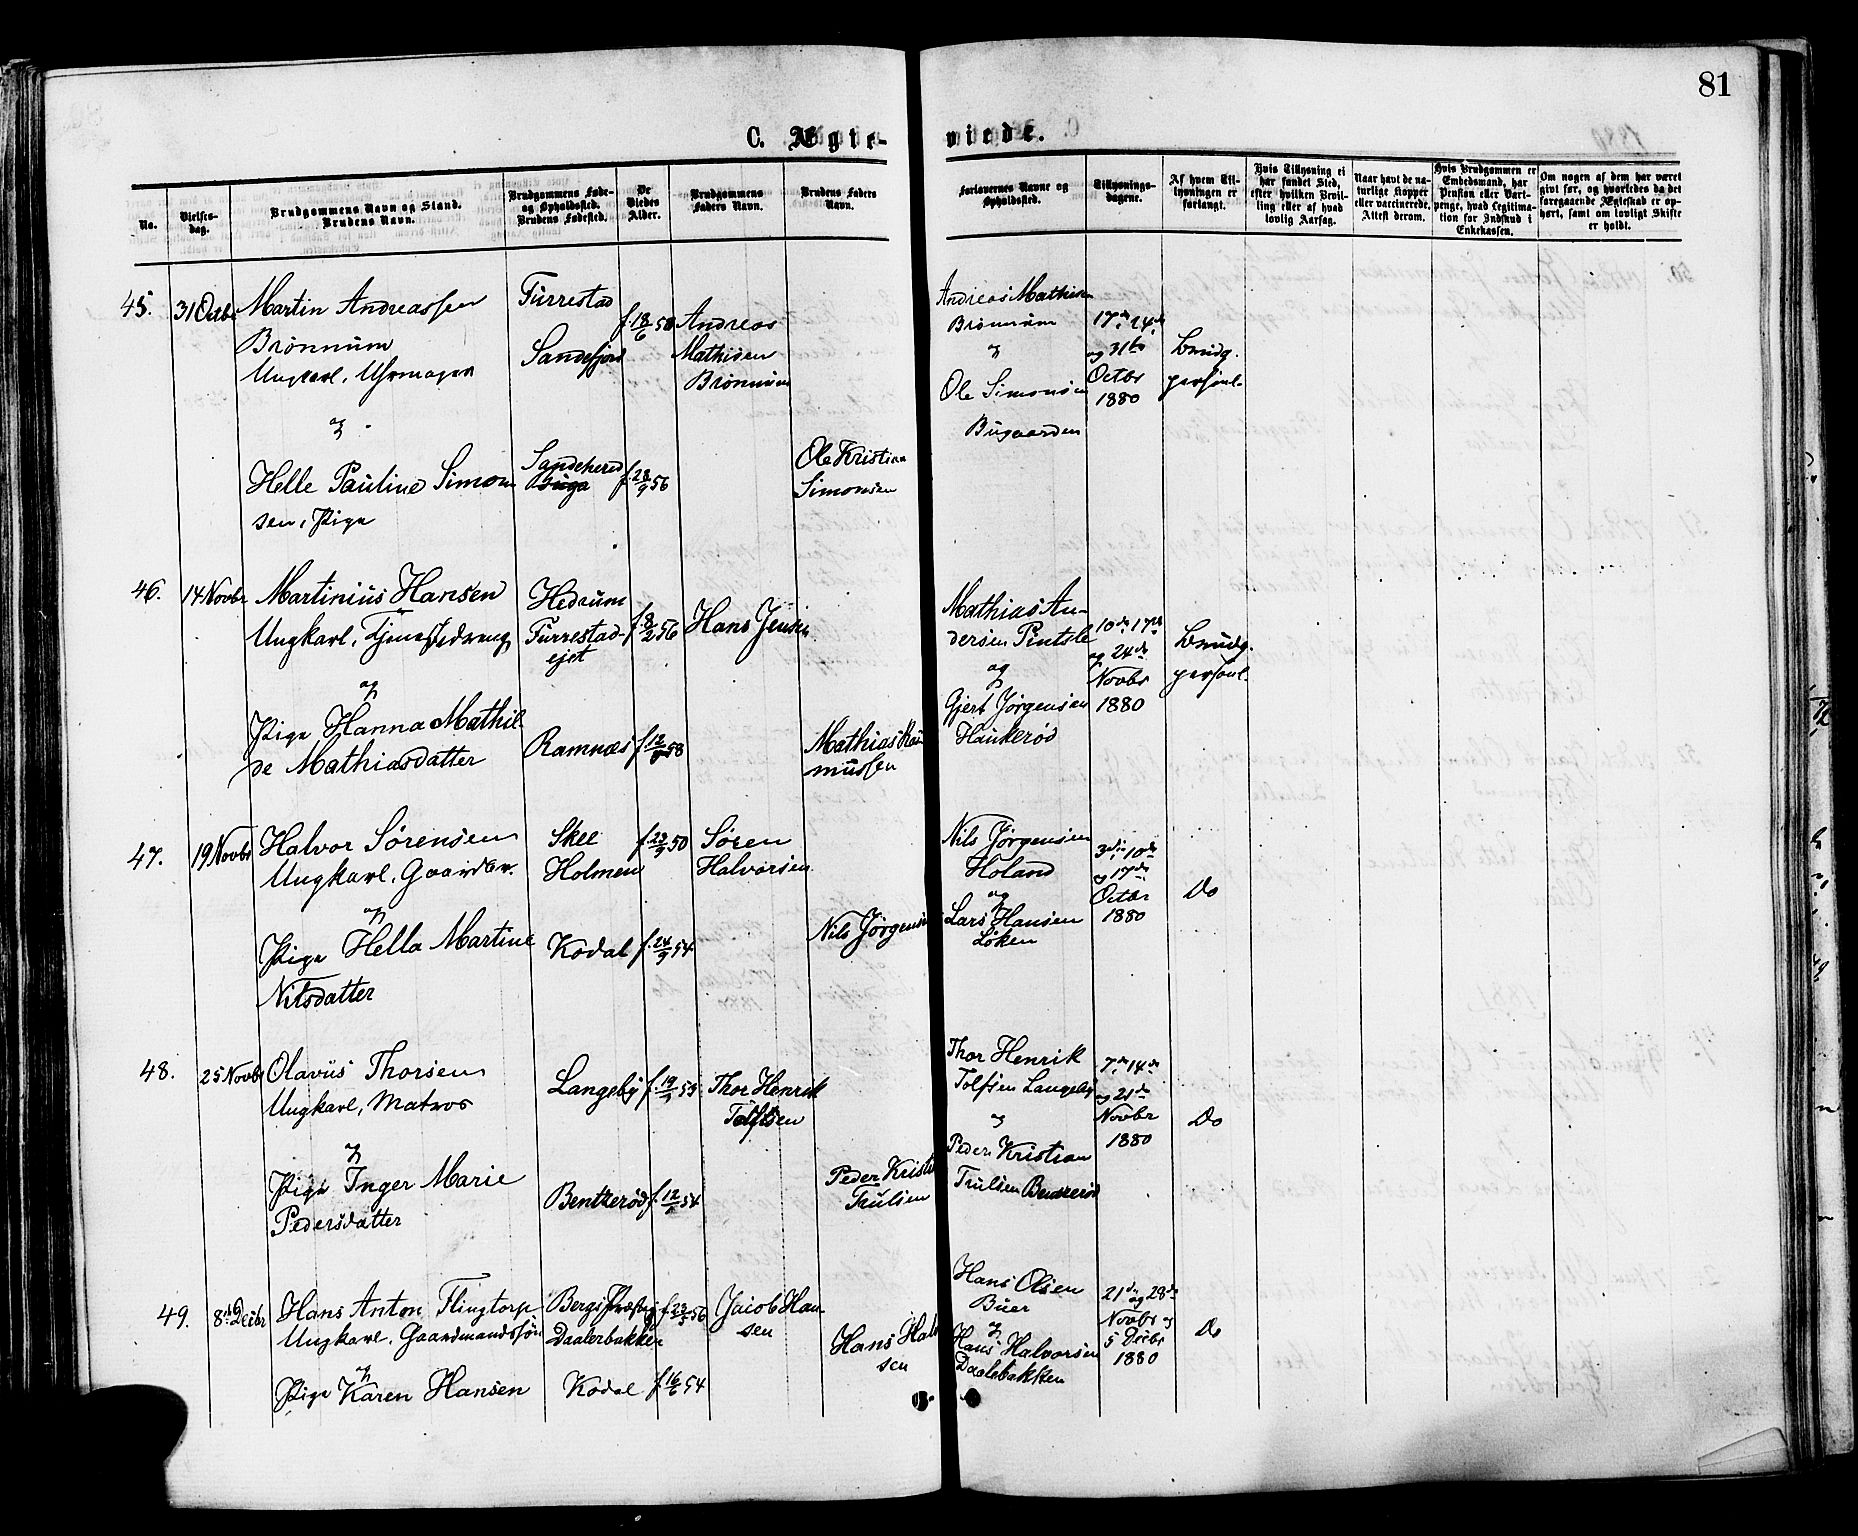 81
C. Ægte-
viede.
No.
Vielses-
dag.
Brudgommens Navn og Stand.
Brudens Navn.
Brudgommens Føde-
og Opholdssted.
Brudens Fødested.
De
Viedes
Alder.
Brudgommens
Faders Navn.
Brudens Faders
Navn.
Forlovernes Navne og
Opholdssted.
Tillysnings-
dagene.
Af hvem Til-
lysningen er
forlangt.
Hvis Tillysning ei
har fundet Sted,
efter hvilken Bevil-
ling eller af hvad
lovlig Aarsag.
Naar havt de na-
turlige Kopper
eller vaccinerede,
Attest derom.
Hvis Brudgommen er
Embedsmand, har
Pension eller Vart-
penge, hvad Legitima-
tion for Indskud i
Enkekassen.
Om nogen af dem har været
givt før, og hvorledes da det
foregaaende Ægteskab er op-
hørt, samt om lovligt Skifte
er holdt.
45.
31 Octbr
Martin Andreassen
Brønnum
Ungkarl, Uhrmager
og
Helle Pauline Simon
sen, Pige
Furrestad
Sandefjord
Sandeherred
f. 18/6 50
f. 28/9 56
Andreas
Mathisen
Brønnum
Ole Kristian
Simonsen
Andreas Mathisen
Brønnum
og
Ole Simonsen
Bugaarden
17de 24de
og 31te
Octbr
1880
Brudg.
personl.
46.
14 Novbr
Martinius Hansen
Ungkarl, Tjenestedreng
og
Pige Hanna Mathil
de Mathiasdatter
Hedrum
Furrestad-
ejet
Ramnæs
f. 8/2 56
f. 12/9 58
Hans Jensen
Mathias Ras
mussen
Mathias An-
dersen Pintsle
og
Gjert Jørgensen
Haukerød
10de 17de
og 24de
Novbr
1880
Brudg.
personl.
47.
19 Novbr
Halvor Sørensen
Ungkarl, Gaardbr.
og
Pige Hella Martine
Nilsdatter
Skee
Holmen
Kodal
f. 23/9 50
f. 24/9 54
Søren
Halvorsen
Nils Jørgensen
Nils Jørgensen
Holand
og
Lars Hansen
Løken
3die 10de
og 17de
Octbr
1880
Do
48.
25 Novbr
Olavus Thorsen
Ungkarl, Matros
og
Pige Inger Marie
Pedersdatter
Langeby
Bentserød
Thor Henrik
Tolfsen
Peder Kristi
Trulsen
Thor Henrik
Tolfsen Langeby
og
Peder Kristian
Trulsen Bentserød
7de 14de
og 21de
Novbr
1880
Do
49.
8de Decbr
Hans Anton Flingtorp
Ungkarl, Gaardmandssøn
og
Pige Karen Hansen
Bergs Præstegj
Daalerbakken
Kodal
f. 23/5 56
f. 16/6 54
Jacob Han-
sen
Hans Halv
sen
Hans Olsen
Buer
og
Hans Halvorsen
Daalebakken
21de og 28de
Novbr og
5 Decbr
1880
Do